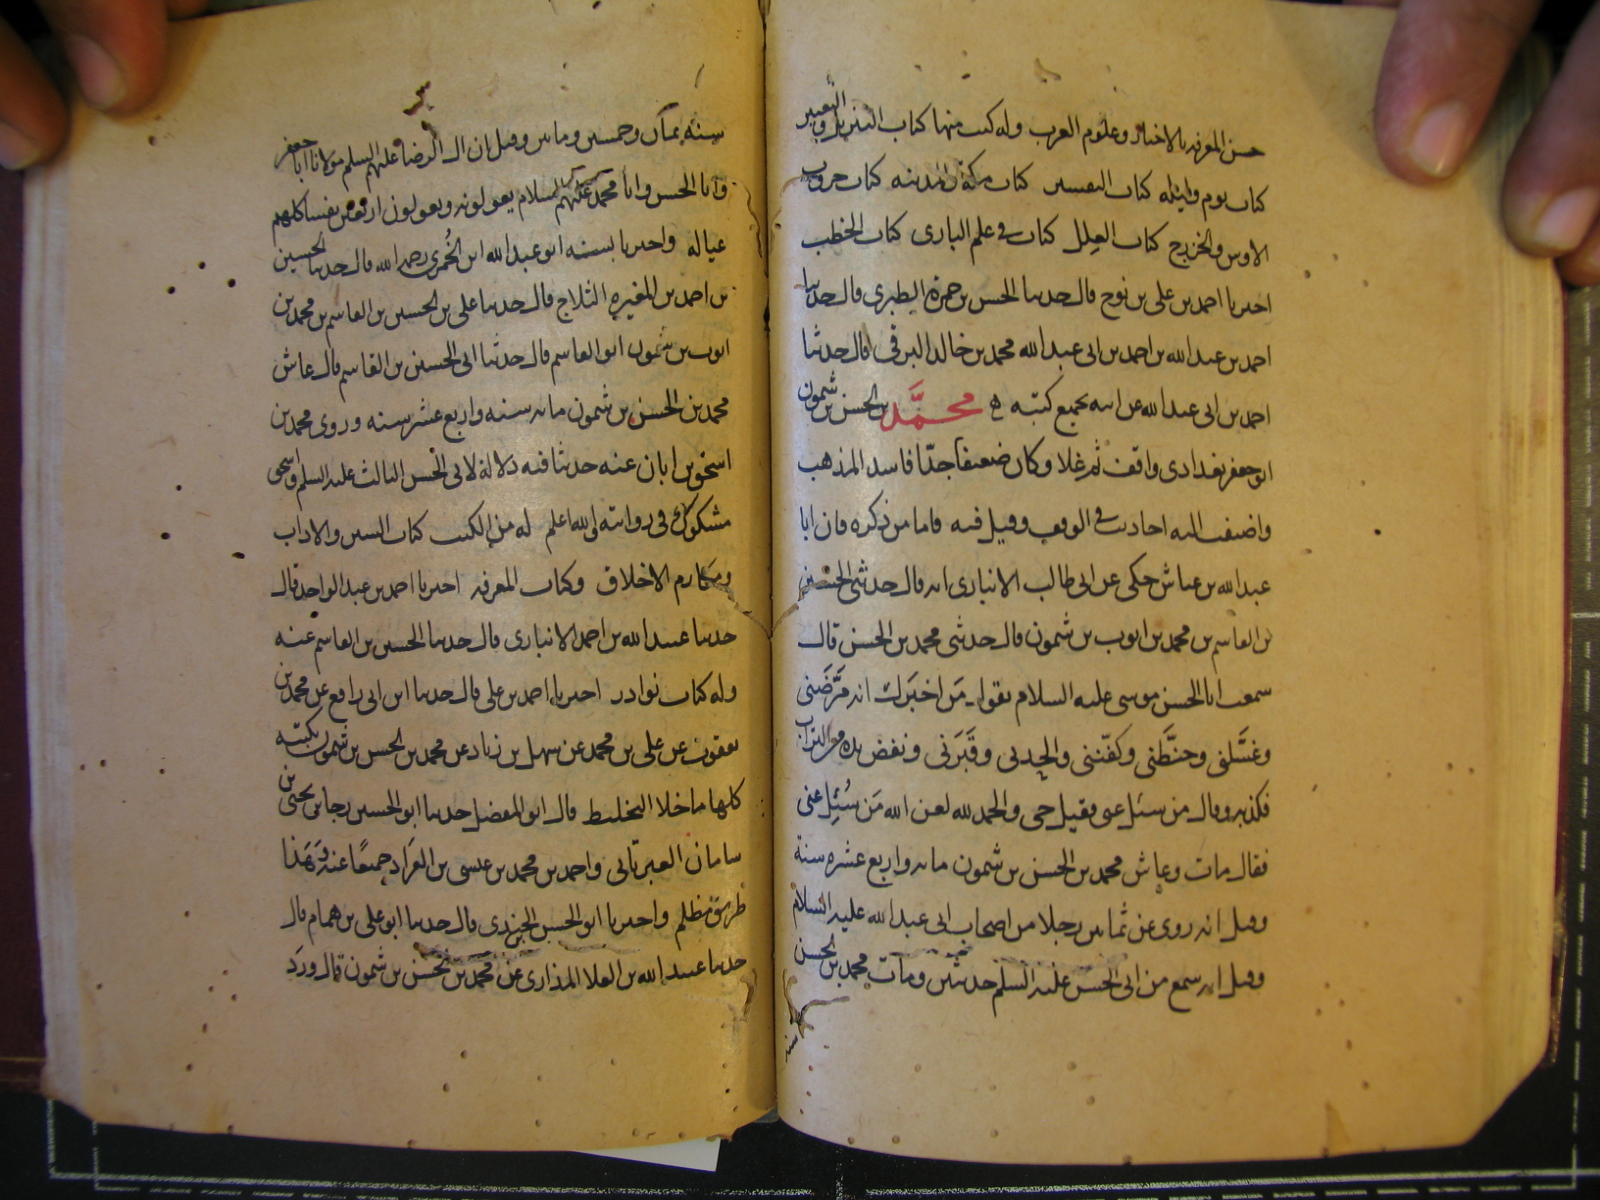 حسن المعرفة بالاخبار وعلوم العرب وله كتب منها كتاب التنزيل والتعبير
كتاب يوم وليلة كتاب التفسير كتاب مكة والمدينة كتاب حروب
الاوس والخزرج كتاب العلل كتاب في علم البارى كتاب الخطب
اخبرنا احمد بن على بن نوح قال حدثنا الحسن بن حمزة الطبرى قال حدثنا
احمد بن عبد الله بن احمد بن ابى عبد الله محمد بن خالد البرقى قال حدثنا
احمد بن ابى عبد الله عن ابيه بجميع كتبه ه محمد بن الحسن بن شمون
ابو جعفر بغدادى واقف ثم غلا وكان ضعيفا جدّا فاسد المذهب
واضيفت اليه احاديث في الوقف وقيل فيه فاما من ذكره فان ابا
عبد الله بن عياش حكى عن ابى طالب الانبارى انه قال حدثنى الحسين
بن القاسم بن محمد بن ايوب بن شمون قال حدثنى محمد بن الحسن قال
سمعت ابا الحسن موسى عليه السلام يقول من اخبرك انه مرّضنى
وغسّلنى وحنّطنى وكفّننى والحدنى وقبّرنى ونفض يده من التراب
فكذبه وقال من سئل عنى فقيل حى والحمد لله لعن الله من سُئِل عنى
فقال مات وعاش محمد بن الحسن بن شمون مائة واربع عشره سنة
وقيل انه روى عن ثمانين رجلا من اصحاب ابى عبد الله عليه السلام
وقيل انه سمع من ابى الحسن عليه السلم حديثين ومات محمد بن الحسن
سنة
سنة ثمان وخمسين ومائتين وقيل ان ال الرضا عليهم السلم مولانا ابا جعفر
وابا الحسن وابا محمد عليهم السلام يعولونه ويعولون اربعين نفسا كلهم
عياله واخبرنا بسنه ابو عبد الله ابن الخُمرى رحمه الله قال حدثنا الحسين
بن احمد بن المغيرة الثلاج قال حدثنا على بن الحسين بن القاسم بن محمد بن
ايوب بن شمون ابو القاسم قال حدثنا ابى الحسين بن القاسم قال عاش
محمد بن الحسن بن شمون مائة سنة واربع عشر سنة وروى محمد بن
اسحق بن ابان عنه حديثا فيه دلالة لابى الحسن الثالث عليه السلم واسحق
مشكوك في روايته والله اعلم له من الكتب كتاب السنن والاداب
ومكارم الاخلاق وكتاب المعرفة اخبرنا احمد بن عبد الواحد قال
حدثنا عبيد الله بن احمد الانبارى قال حدثنا الحسين بن القاسم عنه
وله كتاب نوادر اخبرنا احمد بن على قال حدثنا ابن ابى رافع عن محمد بن
يعقوب عن على بن محمد عن سهل بن زياد عن محمد بن الحسن بن شمون بكتبه
كلها ما خلا التخليط قال ابو المفضل حدثنا ابو الحسين رجا بن يحيى بن
سامان العبرتائى واحمد بن محمد بن عيسى بن العرّاد جميعًا عنه وهذا
طريق مظلم واخبرنا ابو الحسن الجندى قال حدثنا ابو على بن همام قال
حدثنا عبيد الله بن العلا المذارى عن محمد بن الحسن بن شمون قال ورد